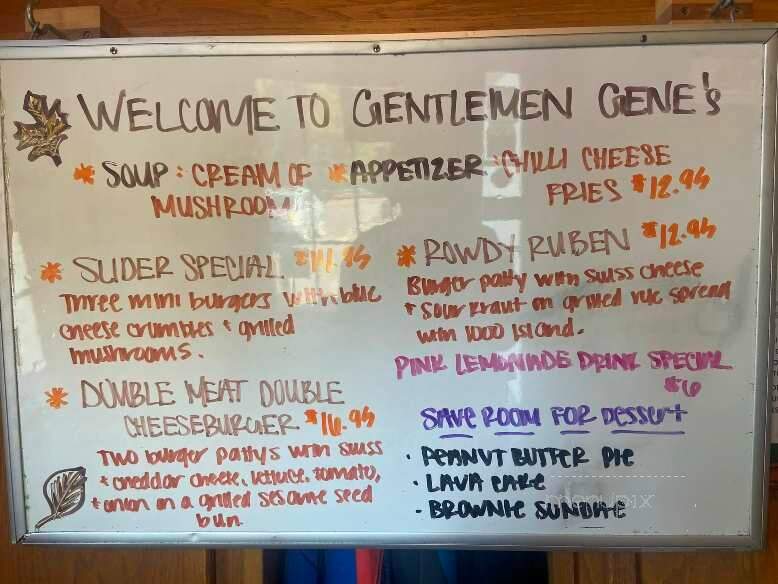 WELCOME TO GENTLEMEN GENE's
* SOUP: CREAM OF MUSHROOM
* APPETIZER: CHILLI CHEESE FRIES $12.95
* SLIDER SPECIAL
Three mini burgers with blue
cheese crumbles + grilled
mushrooms.
* DOUBLE MEAT DOUBLE
CHEESEBURGER $16.95
Two burger pattys with swiss
+ cheddar cheese, lettuce, tomato,
+ onion on a grilled sesame seed
bun.
* ROWDY RUBEN $12.95
Burger patty with swiss cheese
+ sour kraut on grilled rye spread
with 1000 Island.
PINK LEMONADE DRINK SPECIAL
$6
SAVE ROOM FOR DESSERT
• PEANUT BUTTER PIE
• LAVA CAKE
• BROWNIE SUNDAE
menupix